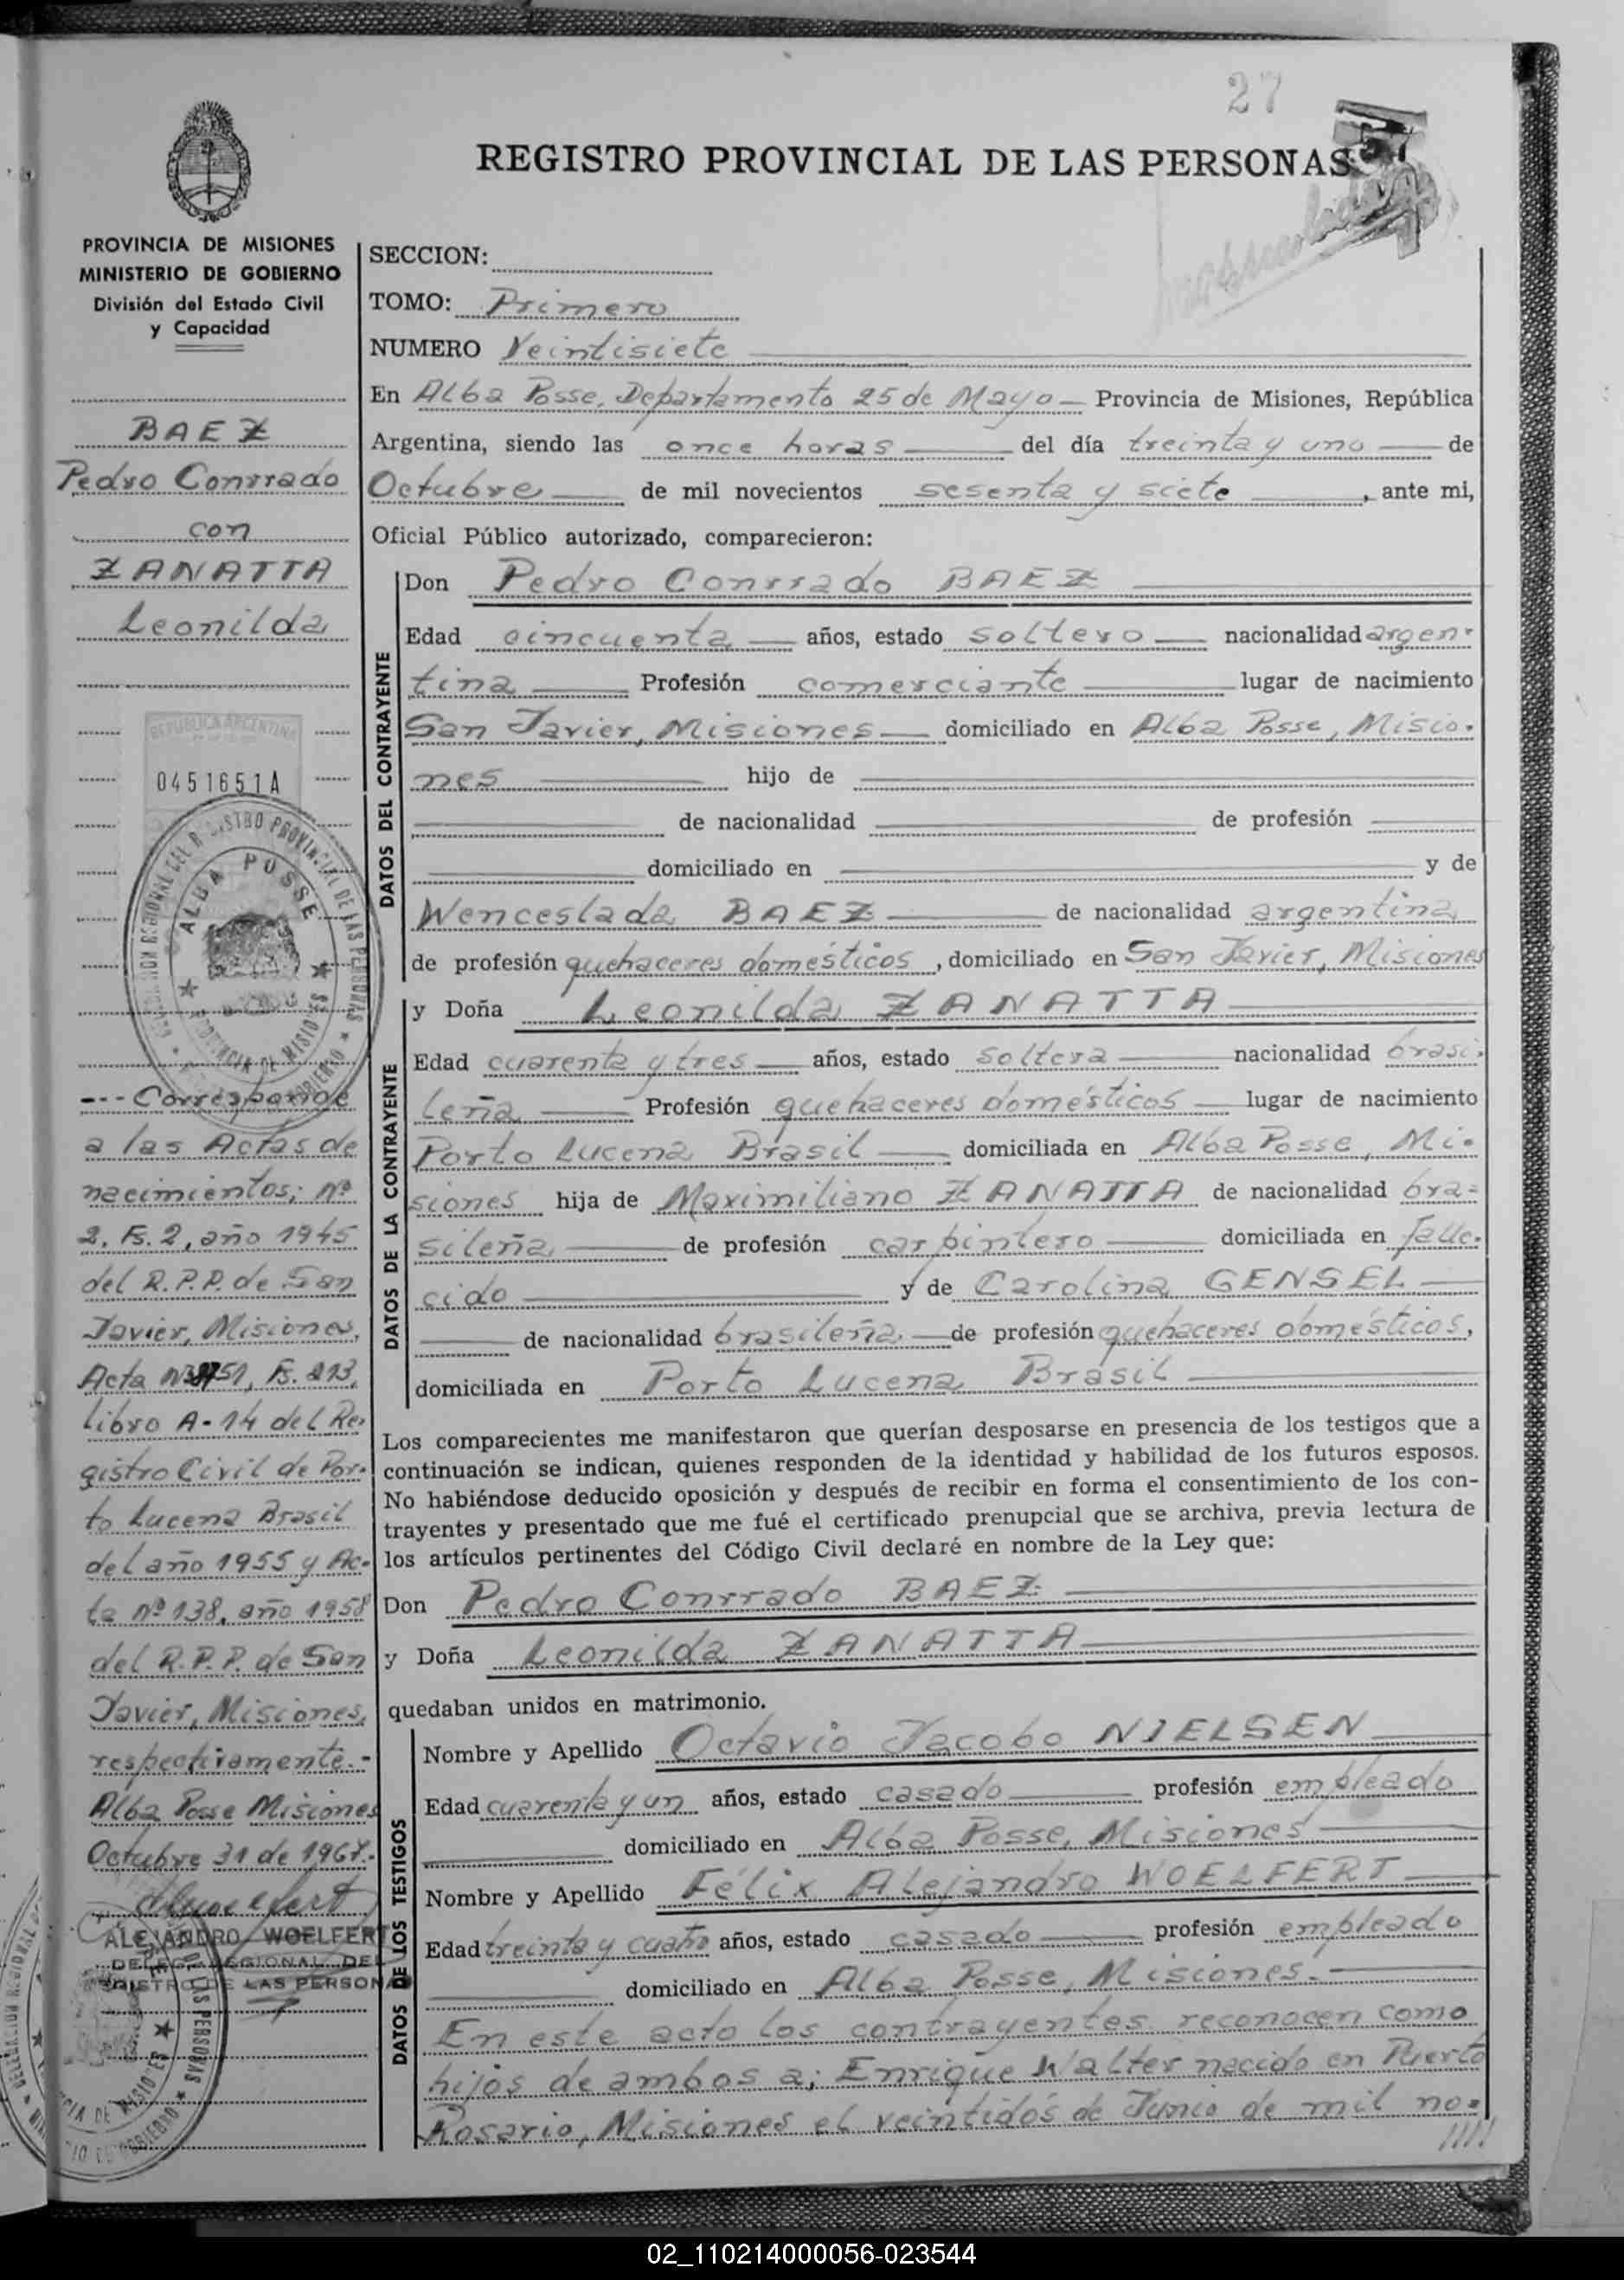 27
REGISTRO PROVINCIAL DE LAS PERSONAS
PROVINCIA DE MISIONES
MINISTERIO DE GOBIERNO
División del Estado Civil
y Capacidad
BAEZ
Pedro Conrrado
con
ZANATTA
Leonilda
REPUBLICA ARGENTINA
0451651A
ALBA POSSE
--- Corresponde
a las Actas de
nacimientos; nº
2, Fs. 2, año 1945
del R.P.P. de San
Javier, Misiones,
Acta Fs. 213,
Libro A-14 del Re-
gistro Civil de Por-
to Lucena Brasil
del año 1955 y Ac-
ta nº 138, año 1958
del R.P.P. de San
Javier, Misiones,
respectivamente.-
Alba Posse Misiones
Octubre 31 de 1967.-
ALEJANDRO WOELFERT
SECCION:
TOMO: Primero
NUMERO Veintisiete
En Alba Posse, Departamento 25 de Mayo - Provincia de Misiones, República
Argentina, siendo las once horas del día treinta y uno de
Octubre de mil novecientos sesenta y siete, ante mi,
Oficial Público autorizado, comparecieron:
DATOS DEL CONTRAYENTE
Don Pedro Conrrado BAEZ
Edad cincuenta años, estado soltero nacionalidad argen-
tina Profesión comerciante lugar de nacimiento
San Javier, Misiones domiciliado en Alba Posse, Misio-
nes hijo de
de nacionalidad de profesión
domiciliado en y de
Wenceslada BAEZ de nacionalidad argentina
de profesión quehaceres domésticos, domiciliado en San Javier, Misiones
DATOS DE LA CONTRAYENTE
y Doña Leonilda ZANATTA
Edad cuarenta y tres años, estado soltera nacionalidad brasi-
leña Profesión quehaceres domésticos lugar de nacimiento
Porto Lucena Brasil domiciliada en Alba Posse, Mi-
siones hija de Maximiliano ZANATTA de nacionalidad bra-
sileña de profesión carpintero domiciliada en falle-
cido y de Carolina GENSEL
de nacionalidad brasileña de profesión quehaceres domésticos,
domiciliada en Porto Lucena Brasil
Los comparecientes me manifestaron que querían desposarse en presencia de los testigos que a
continuación se indican, quienes responden de la identidad y habilidad de los futuros esposos.
No habiéndose deducido oposición y después de recibir en forma el consentimiento de los con-
trayentes y presentado que me fué el certificado prenupcial que se archiva, previa lectura de
los artículos pertinentes del Código Civil declaré en nombre de la Ley que:
Don Pedro Conrrado BAEZ
y Doña Leonilda ZANATTA
quedaban unidos en matrimonio.
DATOS DE LOS TESTIGOS
Nombre y Apellido Octavio Jacobo NIELSEN
Edad cuarenta y un años, estado casado profesión empleado
domiciliado en Alba Posse, Misiones
Nombre y Apellido Félix Alejandro WOELFERT
Edad treinta y cuatro años, estado casado profesión empleado
domiciliado en Alba Posse, Misiones.
En este acto los contrayentes reconocen como
hijos de ambos a; Enrique Walter nacido en Puerto
Rosario, Misiones el veintidós de Junio de mil no-
////
02_110214000056-023544